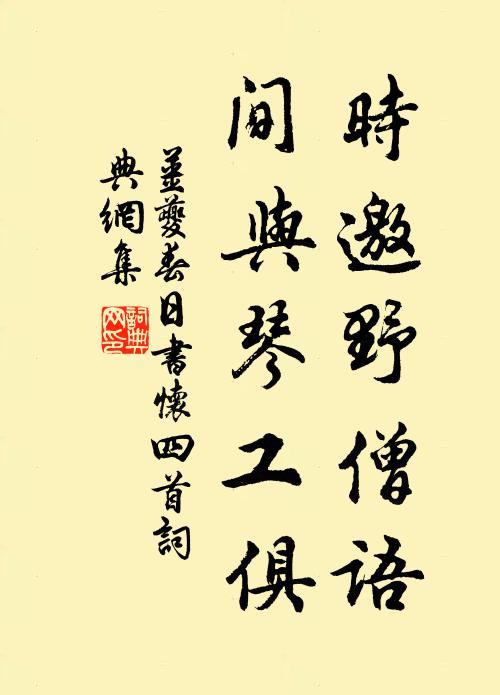 時邀野僧語
間與琴工俱
姜夔春日書懷四首詞
典網集
詞典
网印